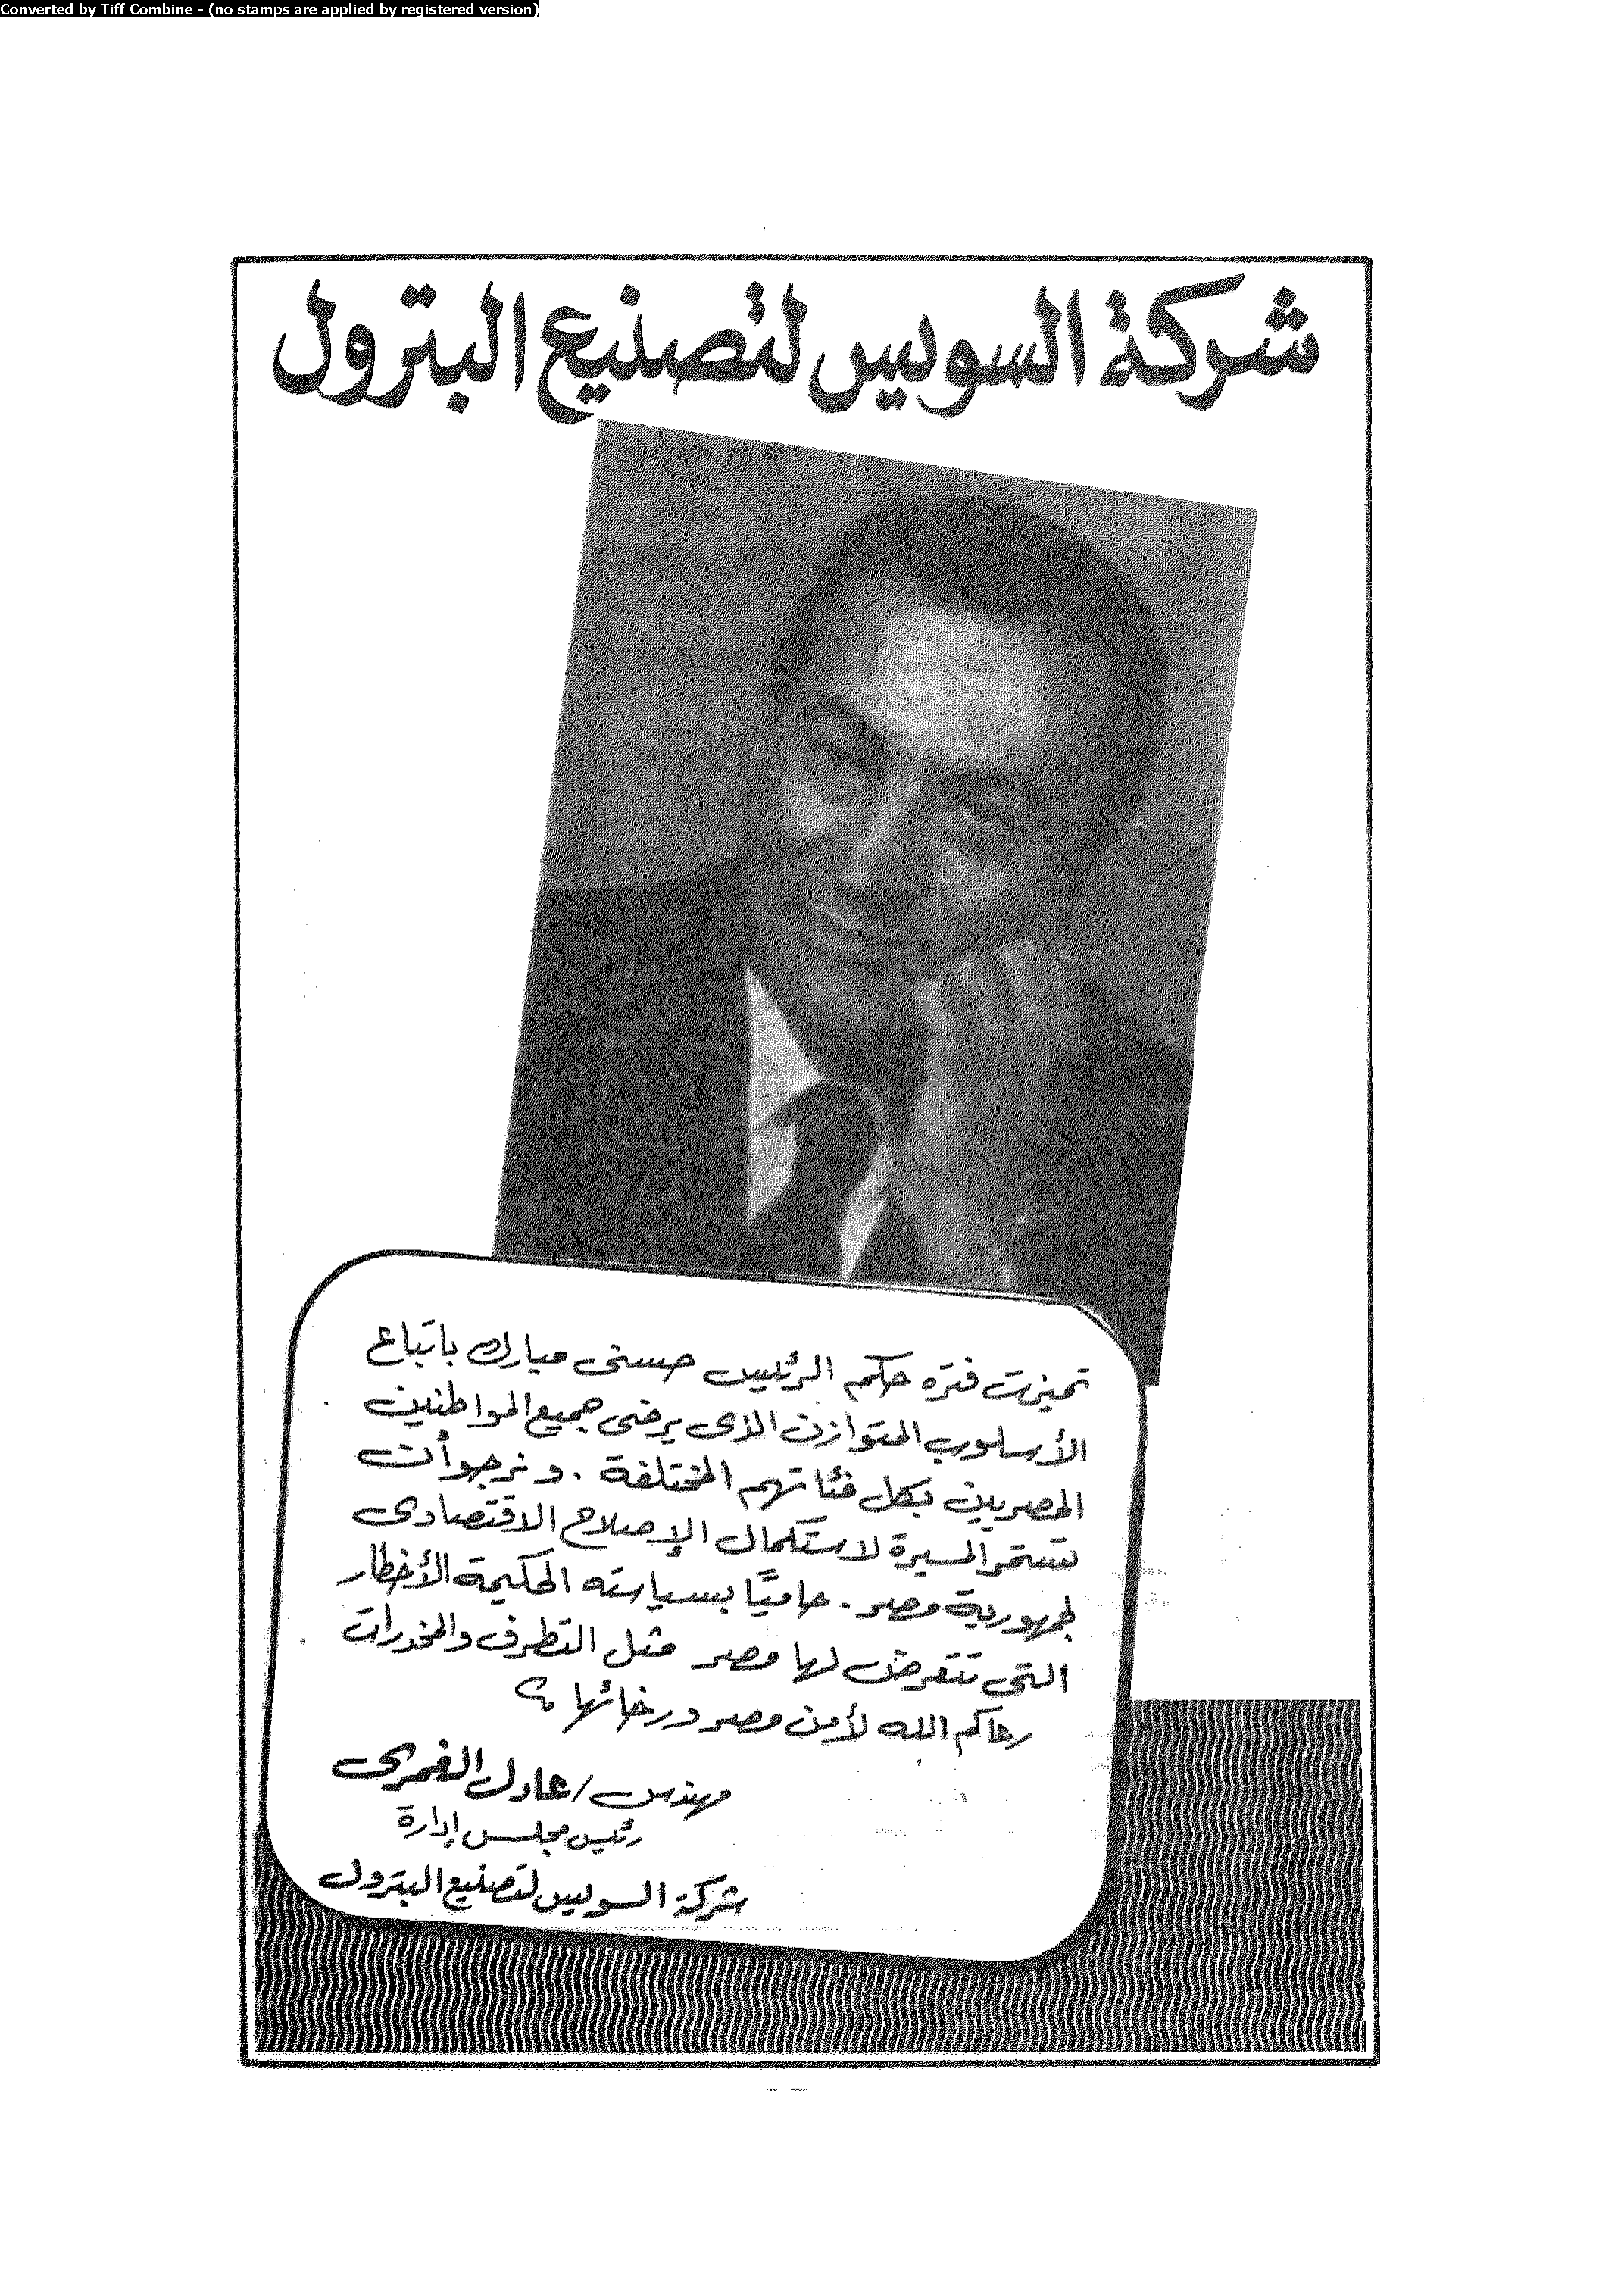 Converted by Tiff Combine - (no stamps are applied by registered version)
شركة السويس لتصنيع البترول
تميزت فتره حكم الرئيس حسنى مبارك باتباع
الأسلوب المتوازن الذى يرضى جميع المواطنين
المصريين بكل فئاتهم المختلفة . ونرجوأن
تستمر المسيرة لاستكمال الإصلاح الاقتصادى
لجمهورية مصر . حاميًا بسياسته الحكيمة الأخطار
التى تتعرض لها مصر مثل التطرف والمخدرات .
رعاكم الله لأمن مصر ورخائها
مهندس / عادل الغمرى
رئيس مجلس إدارة
شركة السويس لتصنيع البترول